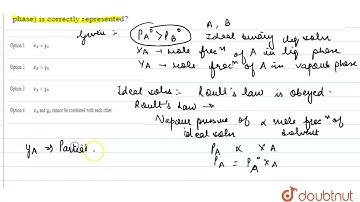 phase) is correctly represented?
Option 1
Option 2
Option 3
Option 4 xA and yA cannot be correlated with each other
Given :- PA° > PB° A, B
Ideal binary liq soln
XA → mole frac^n of A in liq phase
YA → mole frac^n of A in vapour phase
Ideal soln :- Raoult's law is obeyed.
Raoult's law →
Vapour pressure of ideal soln ∝ mole frac^n of solvent
PA ∝ XA
PA = PA° XA
yA ⇒ Partial
doubtnut